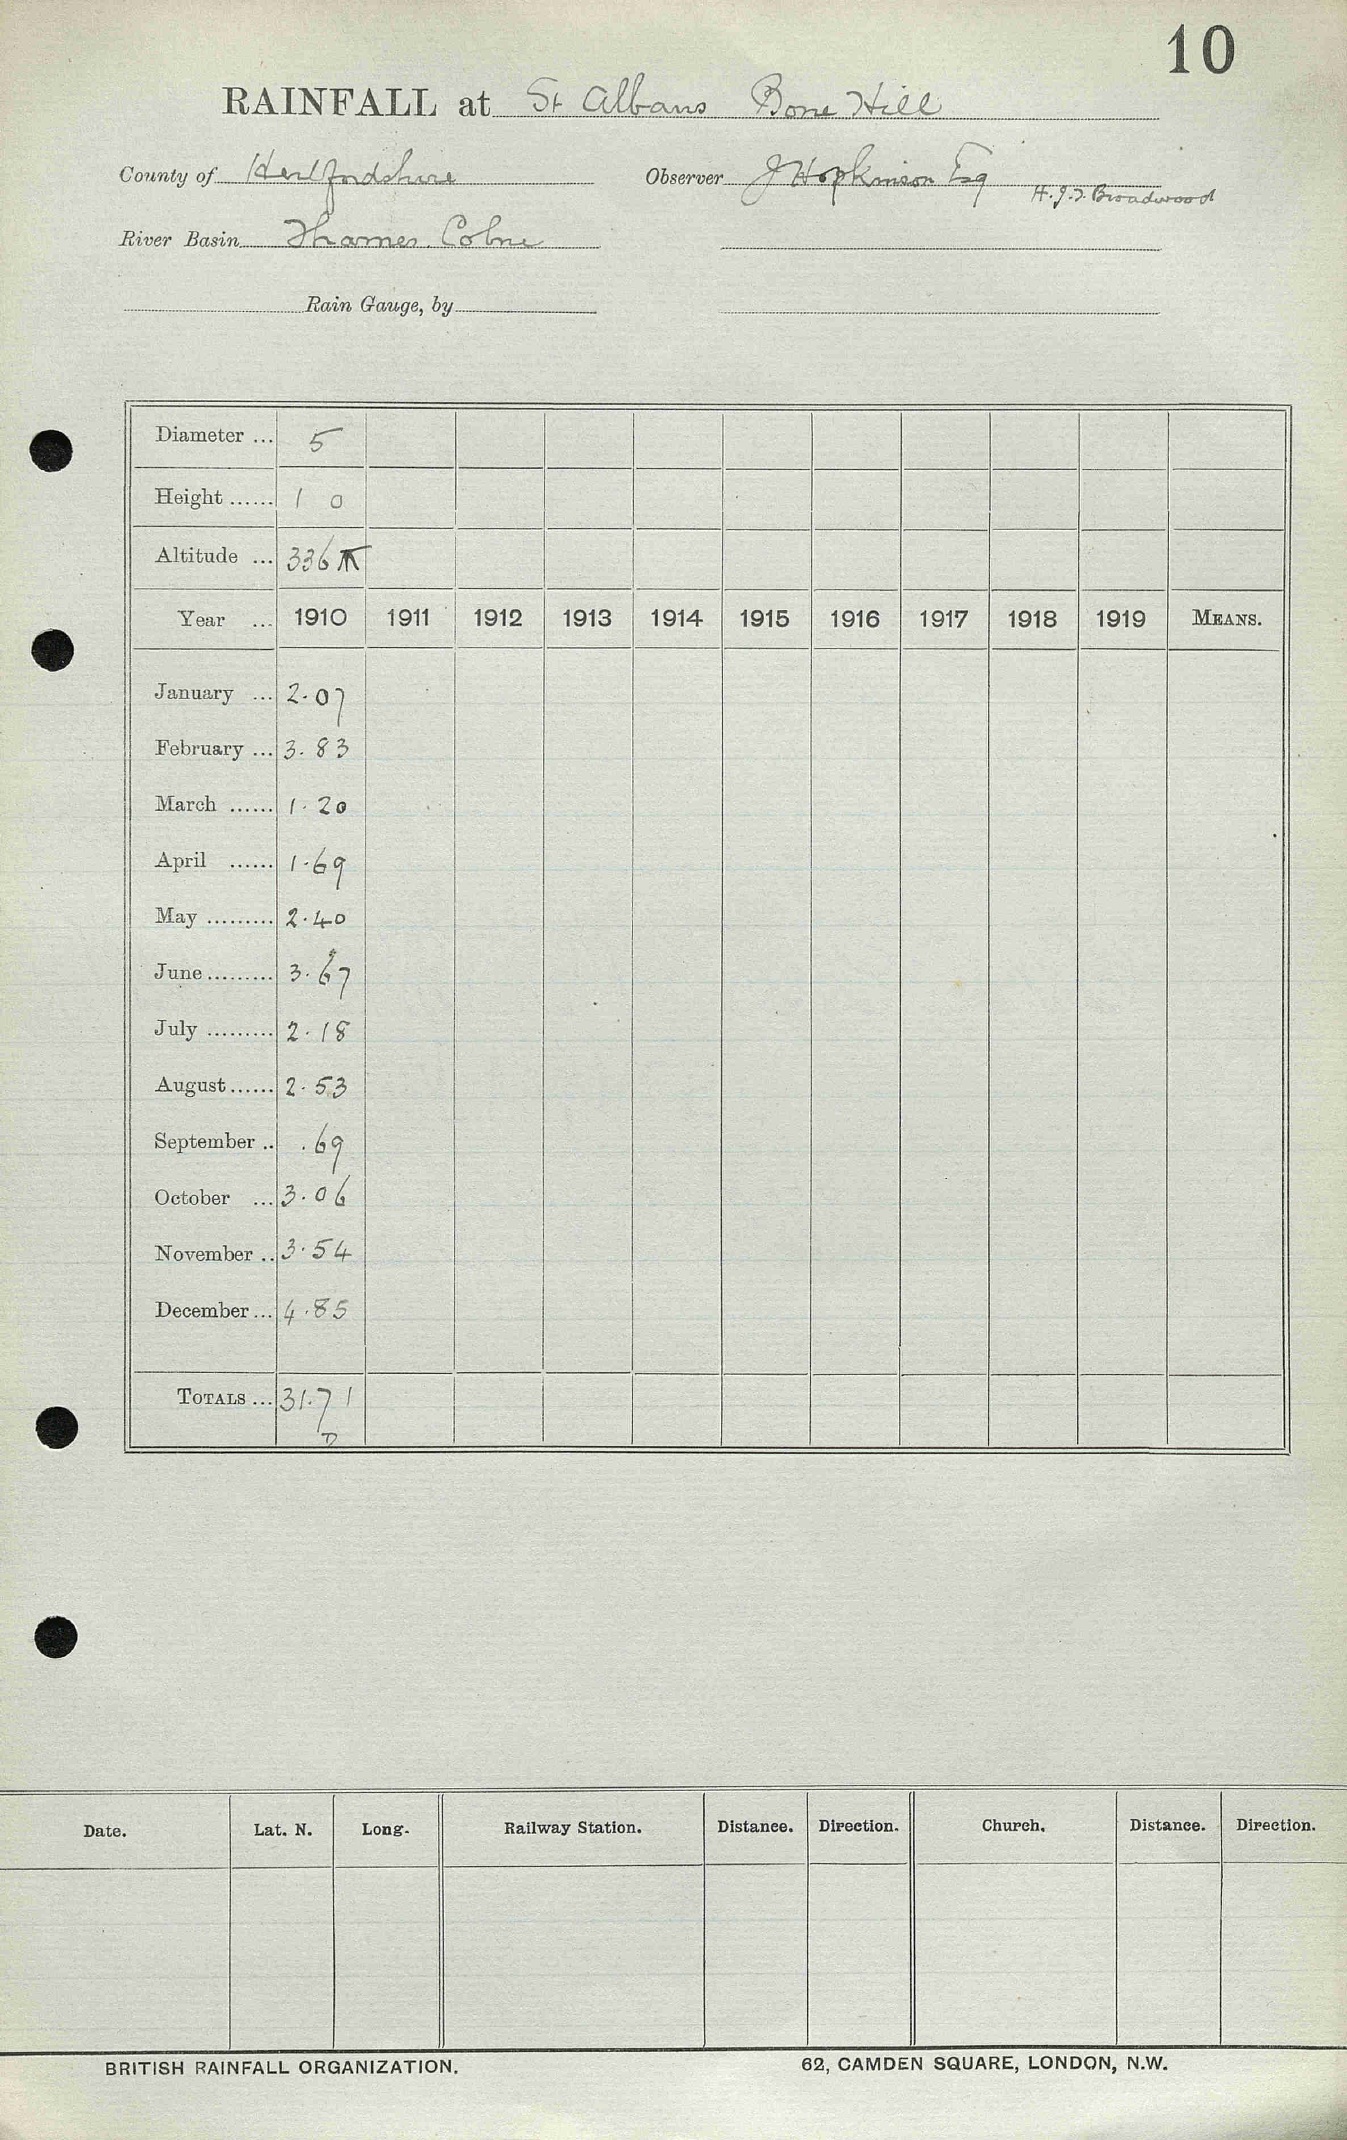 10
RAINFALL at St Albans Bone Hill
County of Hertfordshire Observer J Hopkinson Esq H.J.T. Broadwood
River Basin Thames. Colne
Rain Gauge, by
Diameter ... 5
Height ...... 1 0
Altitude ... 336
Year ... 1910 1911 1912 1913 1914 1915 1916 1917 1918 1919 MEANS.
January ... 2.07
February ... 3.83
March ...... 1.20
April ...... 1.69
May ......... 2.40
June ......... 3.67
July ......... 2.18
August ...... 2.53
September .. .69
October ... 3.06
November .. 3.54
December ... 4.85
TOTALS ... 31.71
D
Date. Lat. N. Long. Railway Station. Distance. Direction. Church. Distance. Direction.
BRITISH RAINFALL ORGANIZATION. 62, CAMDEN SQUARE, LONDON, N.W.